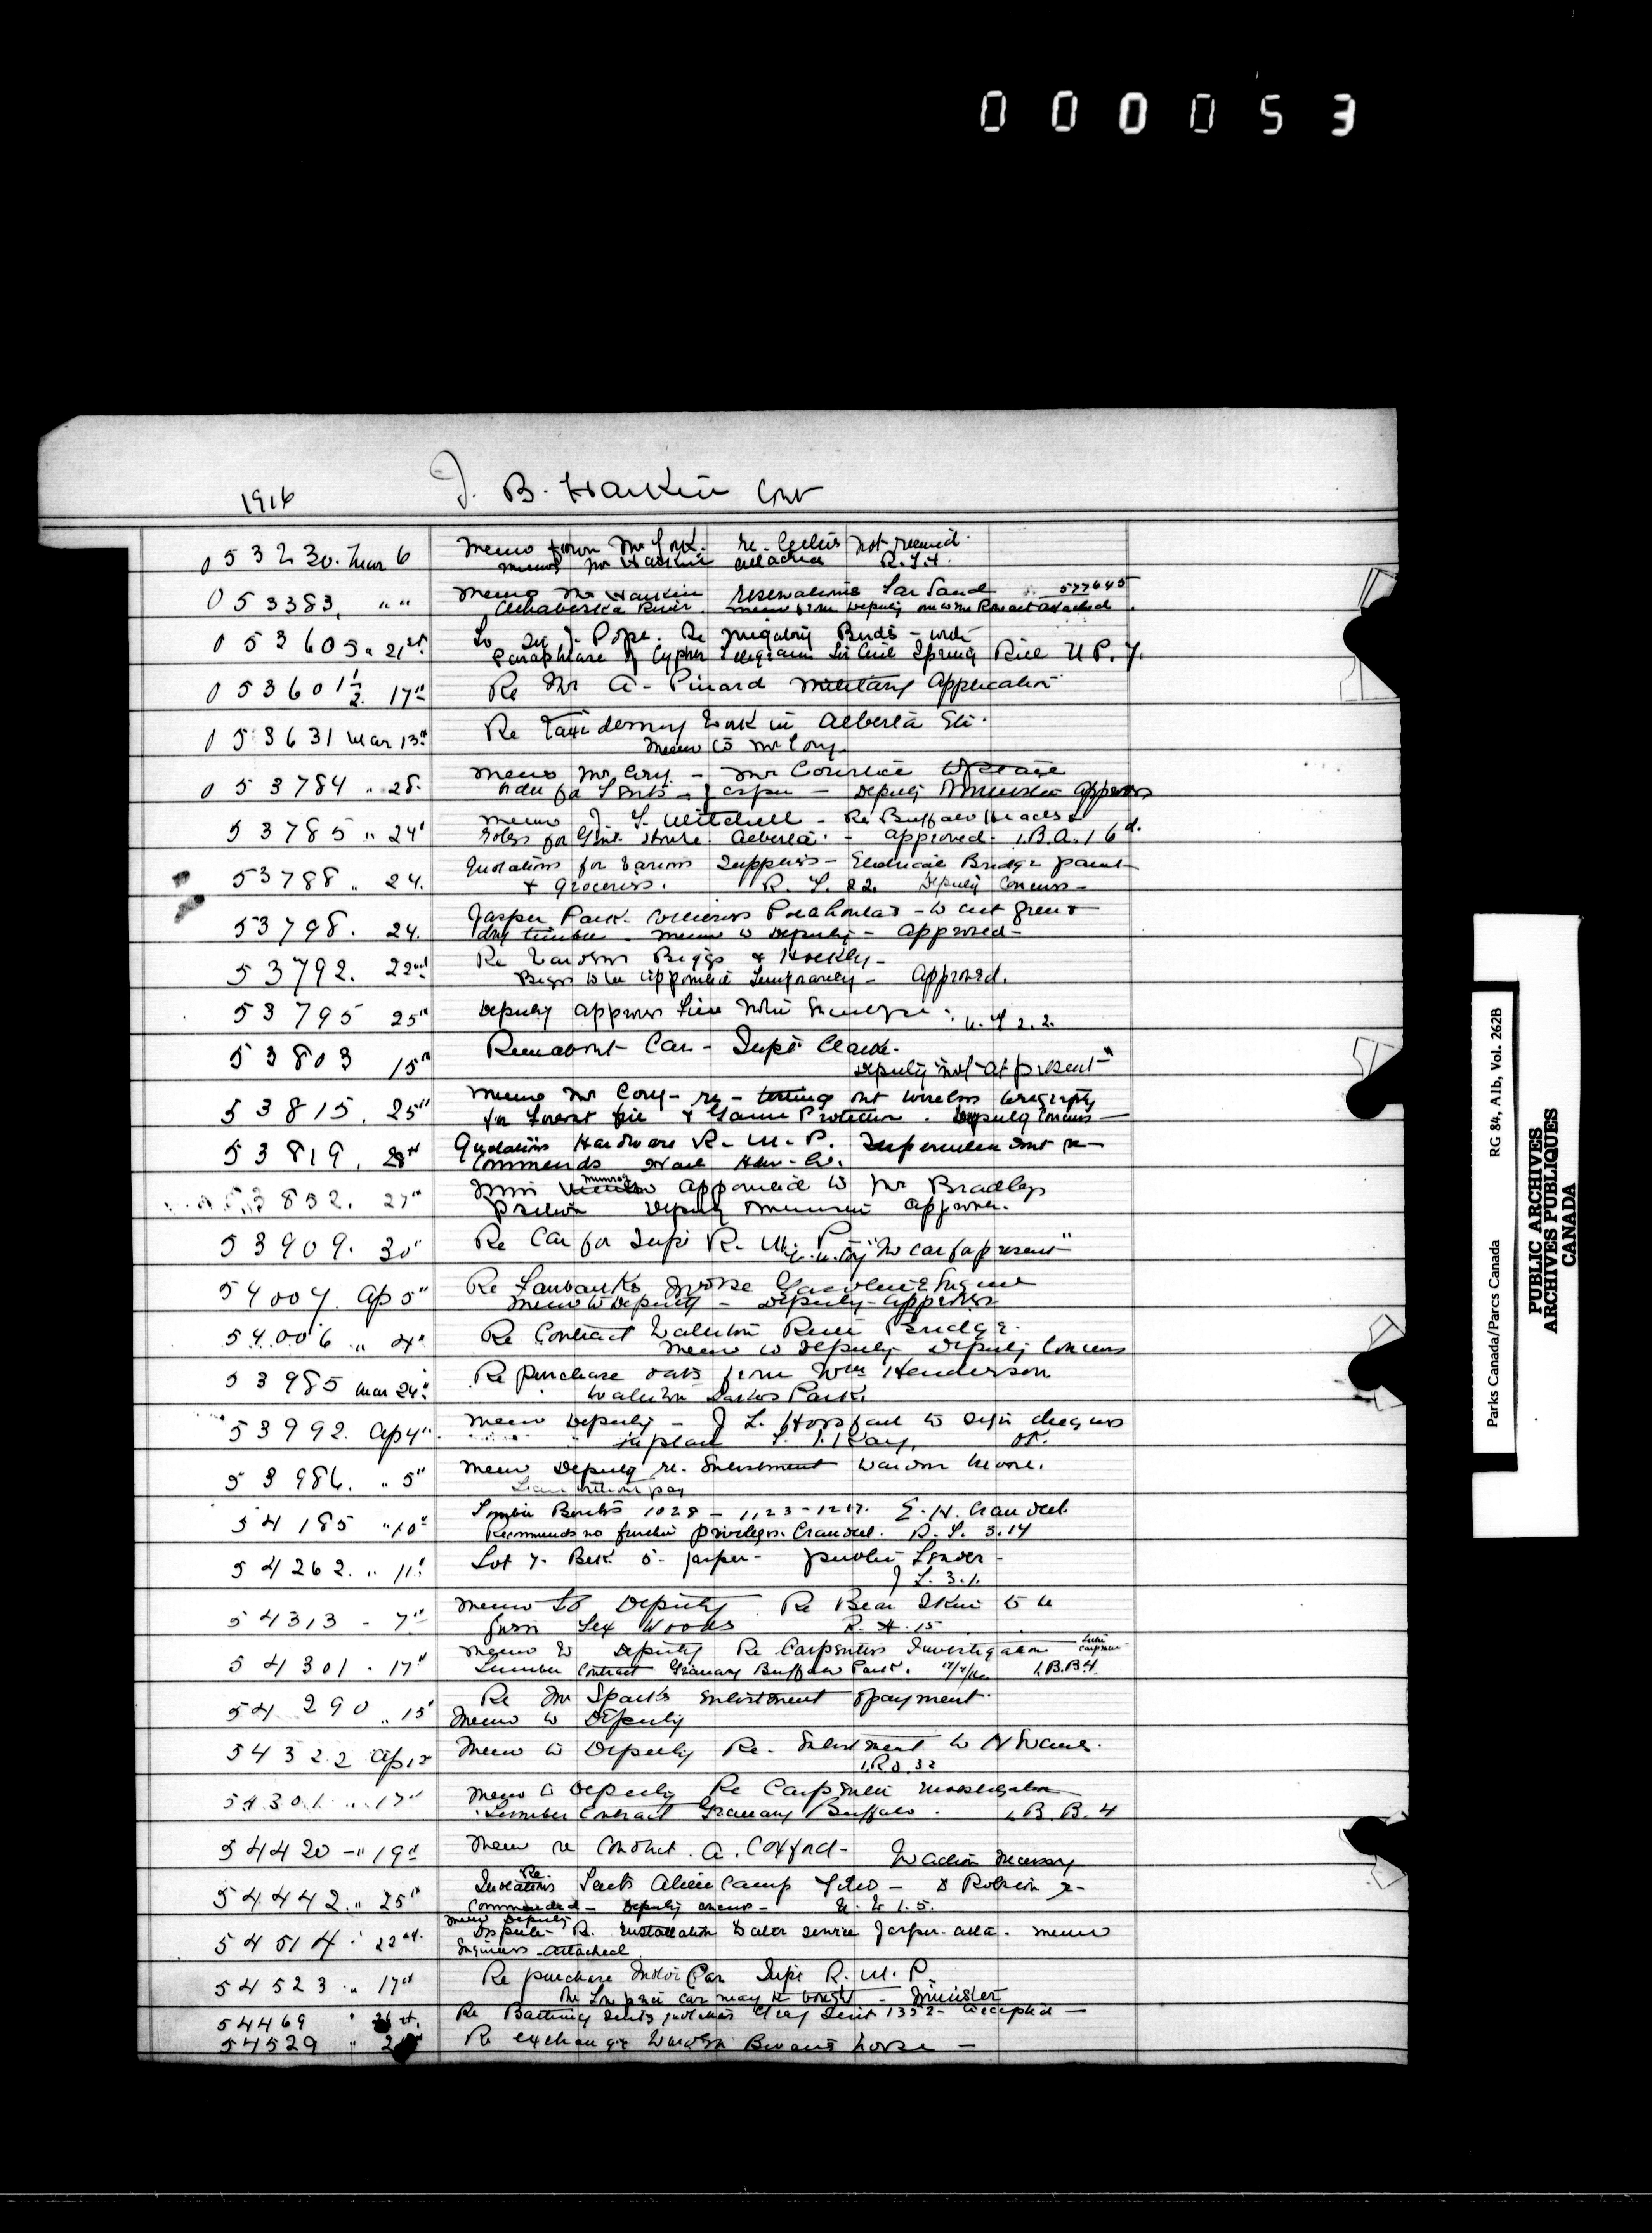 0 0 0 0 5 3
1916 J. B. Harkin Cont
053230. Mar 6 Memo from Mr Cory. re. not received.
Memo Mr Harkin attached R.T.H.
053383, " " Memo Mr Harkin reservations Tar Sand 577645
Athabaska River. Memo from Deputy attached.
053605 " 21st. To Sir J. Pope. Re Migatory Birds - with
paraphrase of Cypher Telegram Sir Cecil Spring Rice U.P.7.
053601½. 17th Re Mr A. Pinard Military Application
053631 Mar 13th Re Taxidermy Work in Alberta Etc.
Memo to Mr Cory.
053784 " 28. Memo Mr Cory - Mr Courtice
for Tents - Jasper - Deputy Minister approves
53785 " 24th Memo J. T. Mitchell - Re Buffalo Heads &
Robes for Govt. House. Alberta. - approved. 1.B.A.16d.
53788 " 24. Quotations for various Supplies - Electrical Bridge paint
& groceries. R.Y.22. Deputy Concurs -
53798. 24. Jasper Park. Collieries Pocahontas - to cut green &
dry timber. Memo to Deputy - Approved -
53792. 22nd Re Wardens Biggs & Hockley -
Biggs to be appointed Temporarily - Approved.
53795 25th Deputy approves U.Y 2.2.
53803 15th Runabout Car - Supt Clarke.
Deputy "not at present"
53815. 25th Memo Mr Cory - re - testing out wireless telegraphy
for Forest fire & Game Protection. Deputy Concurs -
53819. 28th Quotations Hardware R.M.P. Superintendent re-
commends Hdw. Co.
53832. 27th Miss Munroe appointed to Mr Bradleys
Position Deputy Minister approves.
53909. 30th Re Car for Supt R.M.P. "No car for present"
54007. Ap 5th Re Fairbanks Morse Gasoline Engine
Memo to Deputy - Deputy approves
54006 " 4th Re Contract Waterton River Bridge.
Memo to Deputy Deputy Concurs
53985 Mar 24th Re purchase oats from Wm Henderson
Waterton Lakes Park.
53992. Ap 4th. Memo Deputy - J L. Horsfall to sign cheques
in place OK.
53986. " 5th Memo Deputy re. Enlistment Warden Moore.
Leave without pay
54185 " 10th Timber Berths 1028 - 1123 - 1217. E. H. Crandell.
Recommends no further privileges Crandell. R.T. 3.14
54262. " 11th Lot 7. Blk 5. Jasper - public Tender -
J L. 3.1.
54313 - 7th Memo to Deputy Re Bear Skin to be
given Lex Woods R.H.15
54301 - 17th Memo to Deputy Re Carpenters Investigation
Lumber Contract Granary Buffalo Park. 17/4/16 1.B.B4
54290 " 15th Re Mr Sparks enlistment & payment.
Memo to Deputy
54322 Ap 12 Memo to Deputy Re. Enlistment W N Evans.
54301 " 17th Memo to Deputy Re Carpenter Investigation
Lumber Contract Granary Buffalo. 1.B.B.4
54420 - " 19th Memo re Conduct. A. Coxford - No action necessary
54442. " 25th Re. Quotations Tents Alien Camp - re-
commended - Deputy concurs -
54514 " 22nd. Memo Deputy
Dispute - Re. Installation Water Service Jasper. Alta. Memo
Engineers attached
54523 " 17th Re purchase Motor Car Supt R.M.P.
Low price car may be bought - Minister
54469 " Re accepted -
54529 " Re exchange Warden horse -
Parks Canada/Parcs Canada RG 84, A1b, Vol. 262B
PUBLIC ARCHIVES
ARCHIVES PUBLIQUES
CANADA